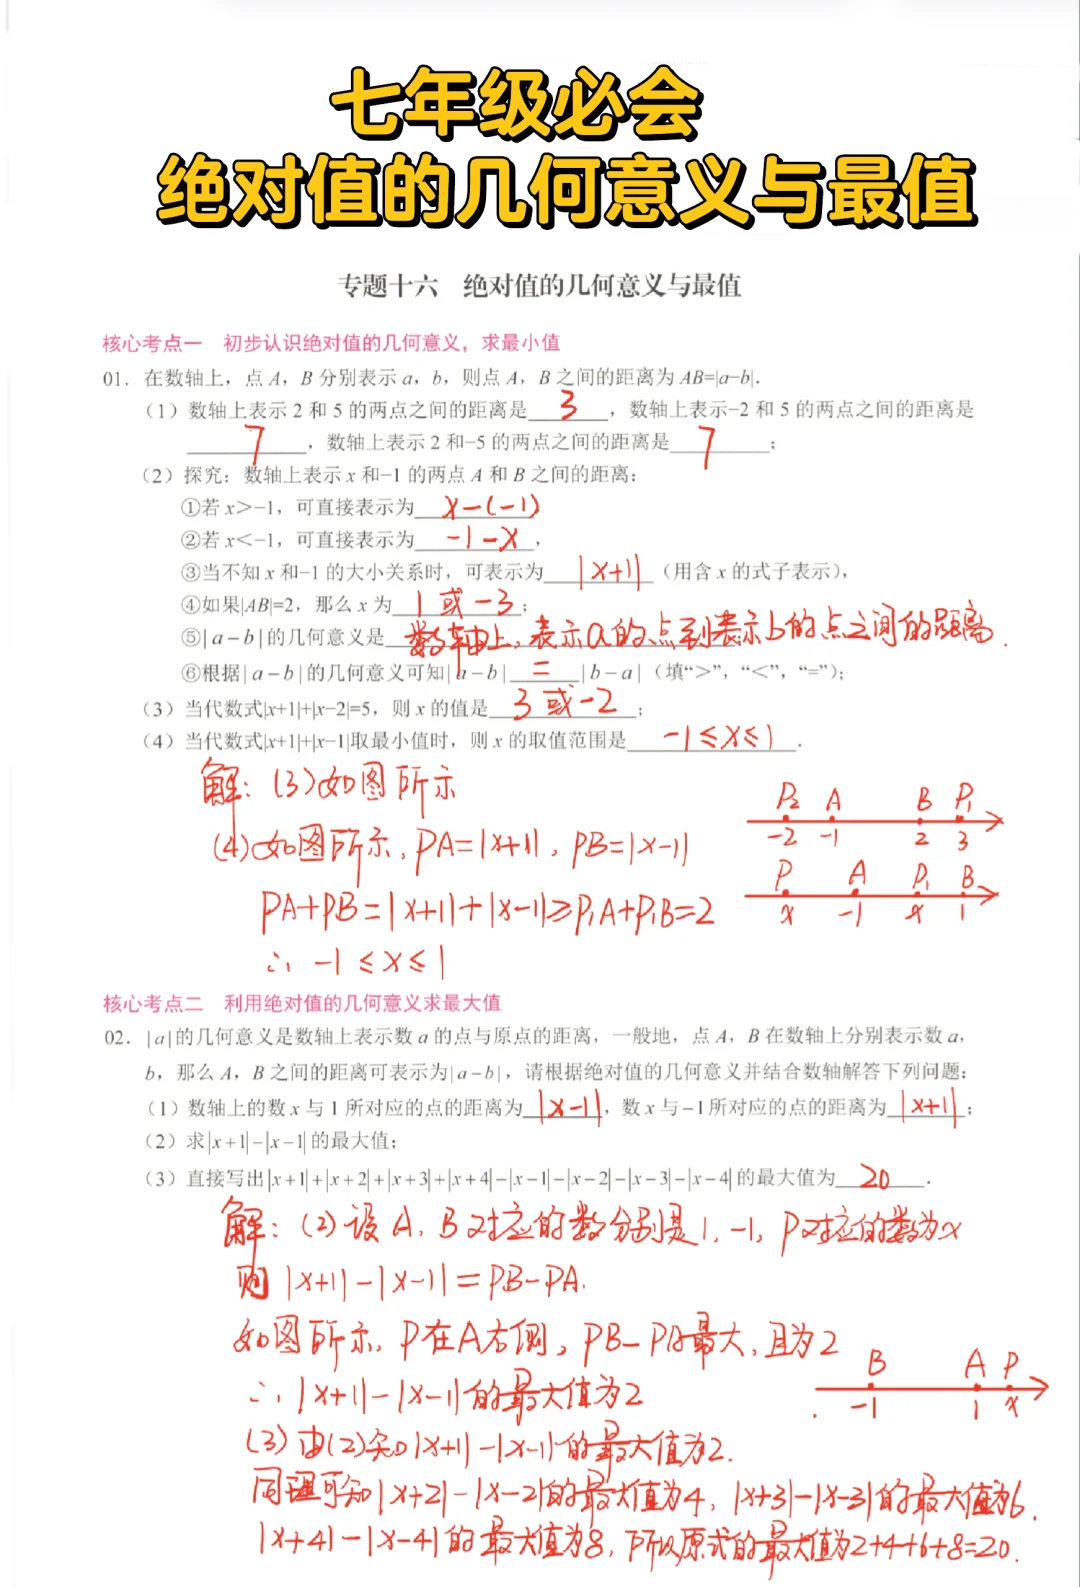 七年级必会
绝对值的几何意义与最值
专题十六 绝对值的几何意义与最值
核心考点一 初步认识绝对值的几何意义，求最小值
01. 在数轴上，点 A，B 分别表示 a，b，则点 A，B 之间的距离为 AB=|a-b|.
（1）数轴上表示 2 和 5 的两点之间的距离是 3 ，数轴上表示-2 和 5 的两点之间的距离是
7 ，数轴上表示 2 和-5 的两点之间的距离是 7 ；
（2）探究：数轴上表示 x 和-1 的两点 A 和 B 之间的距离：
①若 x＞-1，可直接表示为 x-(-1)
②若 x＜-1，可直接表示为 -1-x ，
③当不知 x 和-1 的大小关系时，可表示为 |x+1| （用含 x 的式子表示），
④如果|AB|=2，那么 x 为 1或-3 ；
⑤|a-b|的几何意义是 数轴上，表示a的点到表示b的点之间的距离.
⑥根据|a-b|的几何意义可知|a-b| = |b-a|（填“>”，“<”，“=”）；
（3）当代数式|x+1|+|x-2|=5，则 x 的值是 3或-2 ；
（4）当代数式|x+1|+|x-1|取最小值时，则 x 的取值范围是 -1≤x≤1 .
解：(3)如图所示
P₂ A B P₁
-2 -1 2 3
(4)如图所示，PA=|x+1|，PB=|x-1|
P A P₁ B
x -1 x 1
PA+PB=|x+1|+|x-1|≥P₁A+P₁B=2
∴ -1≤x≤1
核心考点二 利用绝对值的几何意义求最大值
02. |a|的几何意义是数轴上表示数 a 的点与原点的距离，一般地，点 A，B 在数轴上分别表示数 a，
b，那么 A，B 之间的距离可表示为|a-b|，请根据绝对值的几何意义并结合数轴解答下列问题：
（1）数轴上的数 x 与 1 所对应的点的距离为 |x-1| ，数 x 与-1所对应的点的距离为 |x+1| ；
（2）求|x+1|-|x-1|的最大值；
（3）直接写出|x+1|+|x+2|+|x+3|+|x+4|-|x-1|-|x-2|-|x-3|-|x-4|的最大值为 20 .
解：(2)设A，B对应的数分别是1，-1，P对应的数为x
则|x+1|-|x-1|=PB-PA.
如图所示，P在A右侧，PB-PA最大，且为2
B A P
-1 1 x
∴|x+1|-|x-1|的最大值为2
(3)由(2)知|x+1|-|x-1|的最大值为2.
同理可知|x+2|-|x-2|的最大值为4，|x+3|-|x-3|的最大值为6.
|x+4|-|x-4|的最大值为8，所以原式的最大值为2+4+6+8=20.